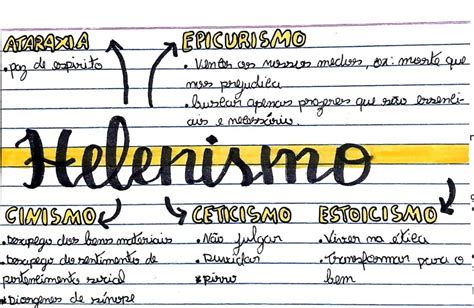 ATARAXIA
• paz de espírito
EPICURISMO
• Vencer os nossos medos, ex: morte que
nos prejudica
• buscar apenas prazeres que são essenci-
ais e necessários.
Helenismo
CINISMO
• Desapego dos bens materiais
• Desapego do sentimento de
pertencimento social
* Diógenes de sínope
CETICISMO
• Não julgar
• Duvidar
* Pirro
ESTOICISMO
• Viver na ética
• Transformar para o
bem